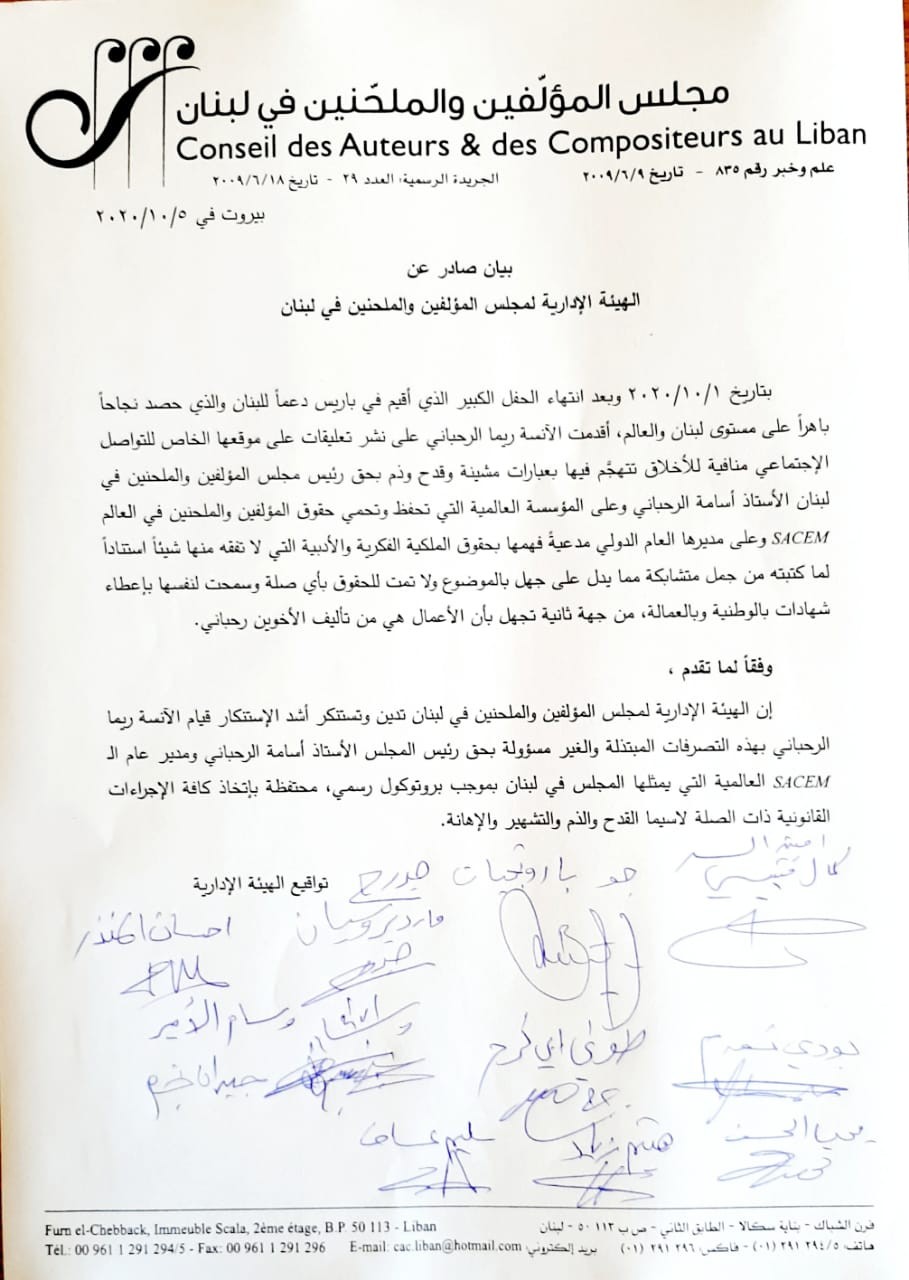 مجلس المؤلّفين والملحّنين في لبنان
Conseil des Auteurs & des Compositeurs au Liban
علم وخبر رقم ٨٣٥ - تاريخ ٢٠٠٩/٦/٩ الجريدة الرسمية: العدد ٢٩ - تاريخ ٢٠٠٩/٦/١٨
بيروت في ٢٠٢٠/١٠/٥
بيان صادر عن
الهيئة الإدارية لمجلس المؤلفين والملحنين في لبنان
بتاريخ ٢٠٢٠/١٠/١ وبعد انتهاء الحفل الكبير الذي أقيم في باريس دعماً للبنان والذي حصد نجاحاً
باهراً على مستوى لبنان والعالم، أقدمت الآنسة ريما الرحباني على نشر تعليقات على موقعها الخاص للتواصل
الإجتماعي منافية للأخلاق تتهجَّم فيها بعبارات مشينة وقدح وذم بحق رئيس مجلس المؤلفين والملحنين في
لبنان الأستاذ أسامة الرحباني وعلى المؤسسة العالمية التي تحفظ وتحمي حقوق المؤلفين والملحنين في العالم
SACEM وعلى مديرها العام الدولي مدعيةً فهمها بحقوق الملكية الفكرية والأدبية التي لا تفقه منها شيئاً استناداً
لما كتبته من جمل متشابكة مما يدل على جهل بالموضوع ولا تمت للحقوق بأي صلة وسمحت لنفسها بإعطاء
شهادات بالوطنية وبالعمالة، من جهة ثانية تجهل بأن الأعمال هي من تأليف الأخوين رحباني.
وفقاً لما تقدم ،
إن الهيئة الإدارية لمجلس المؤلفين والملحنين في لبنان تدين وتستنكر أشد الإستنكار قيام الآنسة ريما
الرحباني بهذه التصرفات المبتذلة والغير مسؤولة بحق رئيس المجلس الأستاذ أسامة الرحباني ومدير عام الـ
SACEM العالمية التي يمثلها المجلس في لبنان بموجب بروتوكول رسمي، محتفظة بإتخاذ كافة الإجراءات
القانونية ذات الصلة لاسيما القدح والذم والتشهير والإهانة.
تواقيع الهيئة الإدارية
جو باروتجيات
احسان المنذر
وسام الأمير
طوني ابي كرم
سليم عساف
هيثم زياد
Furn el-Chebback, Immeuble Scala, 2ème étage, B.P. 50 113 - Liban
فرن الشباك - بناية سكالا - الطابق الثاني - ص ب ١١٣ ٥٠ - لبنان
Tél.: 00 961 1 291 294/5 - Fax: 00 961 1 291 296 E-mail: cac.liban@hotmail.com
هاتف: ٢٩١ ٢٩٤/٥ (٠١) - فاكس: ٢٩١ ٢٩٦ (٠١) بريد إلكتروني: